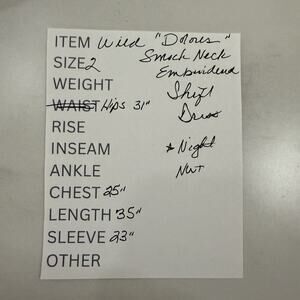 ITEM Wild "Dolores"
Smock Neck
SIZE 2
Embroidered
WEIGHT
Shift
WAIST Hips 31"
Dress
RISE
INSEAM
* Night
ANKLE
NWT
CHEST 25"
LENGTH 35"
SLEEVE 23"
OTHER